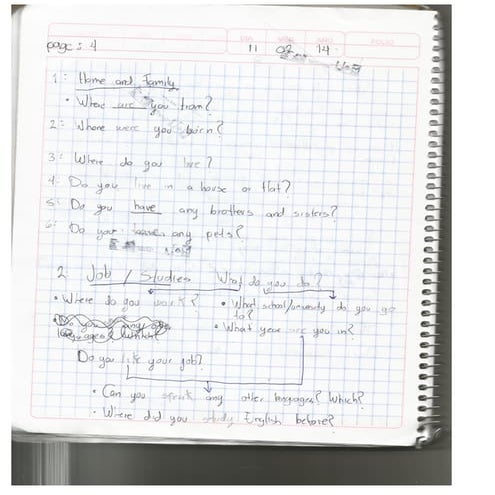 page: 4
DIA MES AÑO FOLIO
11 02 14
1: Home and Family
• Where are you from?
2: Where were you born?
3: Where do you live?
4: Do you live in a house or flat?
5: Do you have any brothers and sisters?
6: Do you have any pets?
2 Job / Studies What do you do?
• Where do you work? • What school/university do you go
to?
• What year are you in?
Do you like your job?
• Can you speak any other languages? Which?
• Where did you study English before?